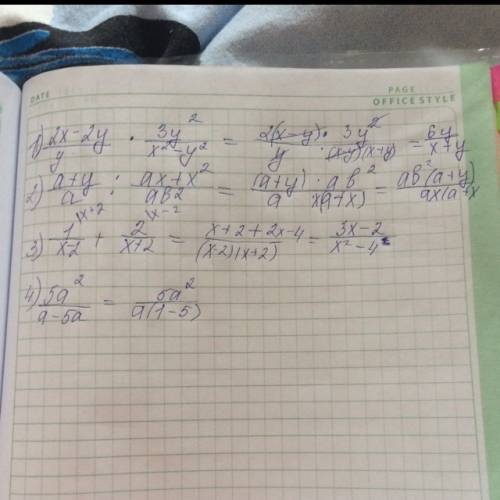 DATE PAGE
OFFICE STYLE
1) (2x-2y)/y · 3y²/(x²-y²) = 2(x-y)·3y²/(y·(x-y)(x+y)) = 6y/(x+y)
2) (a+y)/a : (ax+x²)/(ab²) = (a+y)/a · ab²/(x(a+x)) = ab²(a+y)/(ax(a+x
3) 1/(x-2) |x+2 + 2/(x+2) |x-2 = (x+2+2x-4)/((x-2)(x+2)) = (3x-2)/(x²-4)
4) 5a²/(a-5a) = 5a²/(a(1-5))